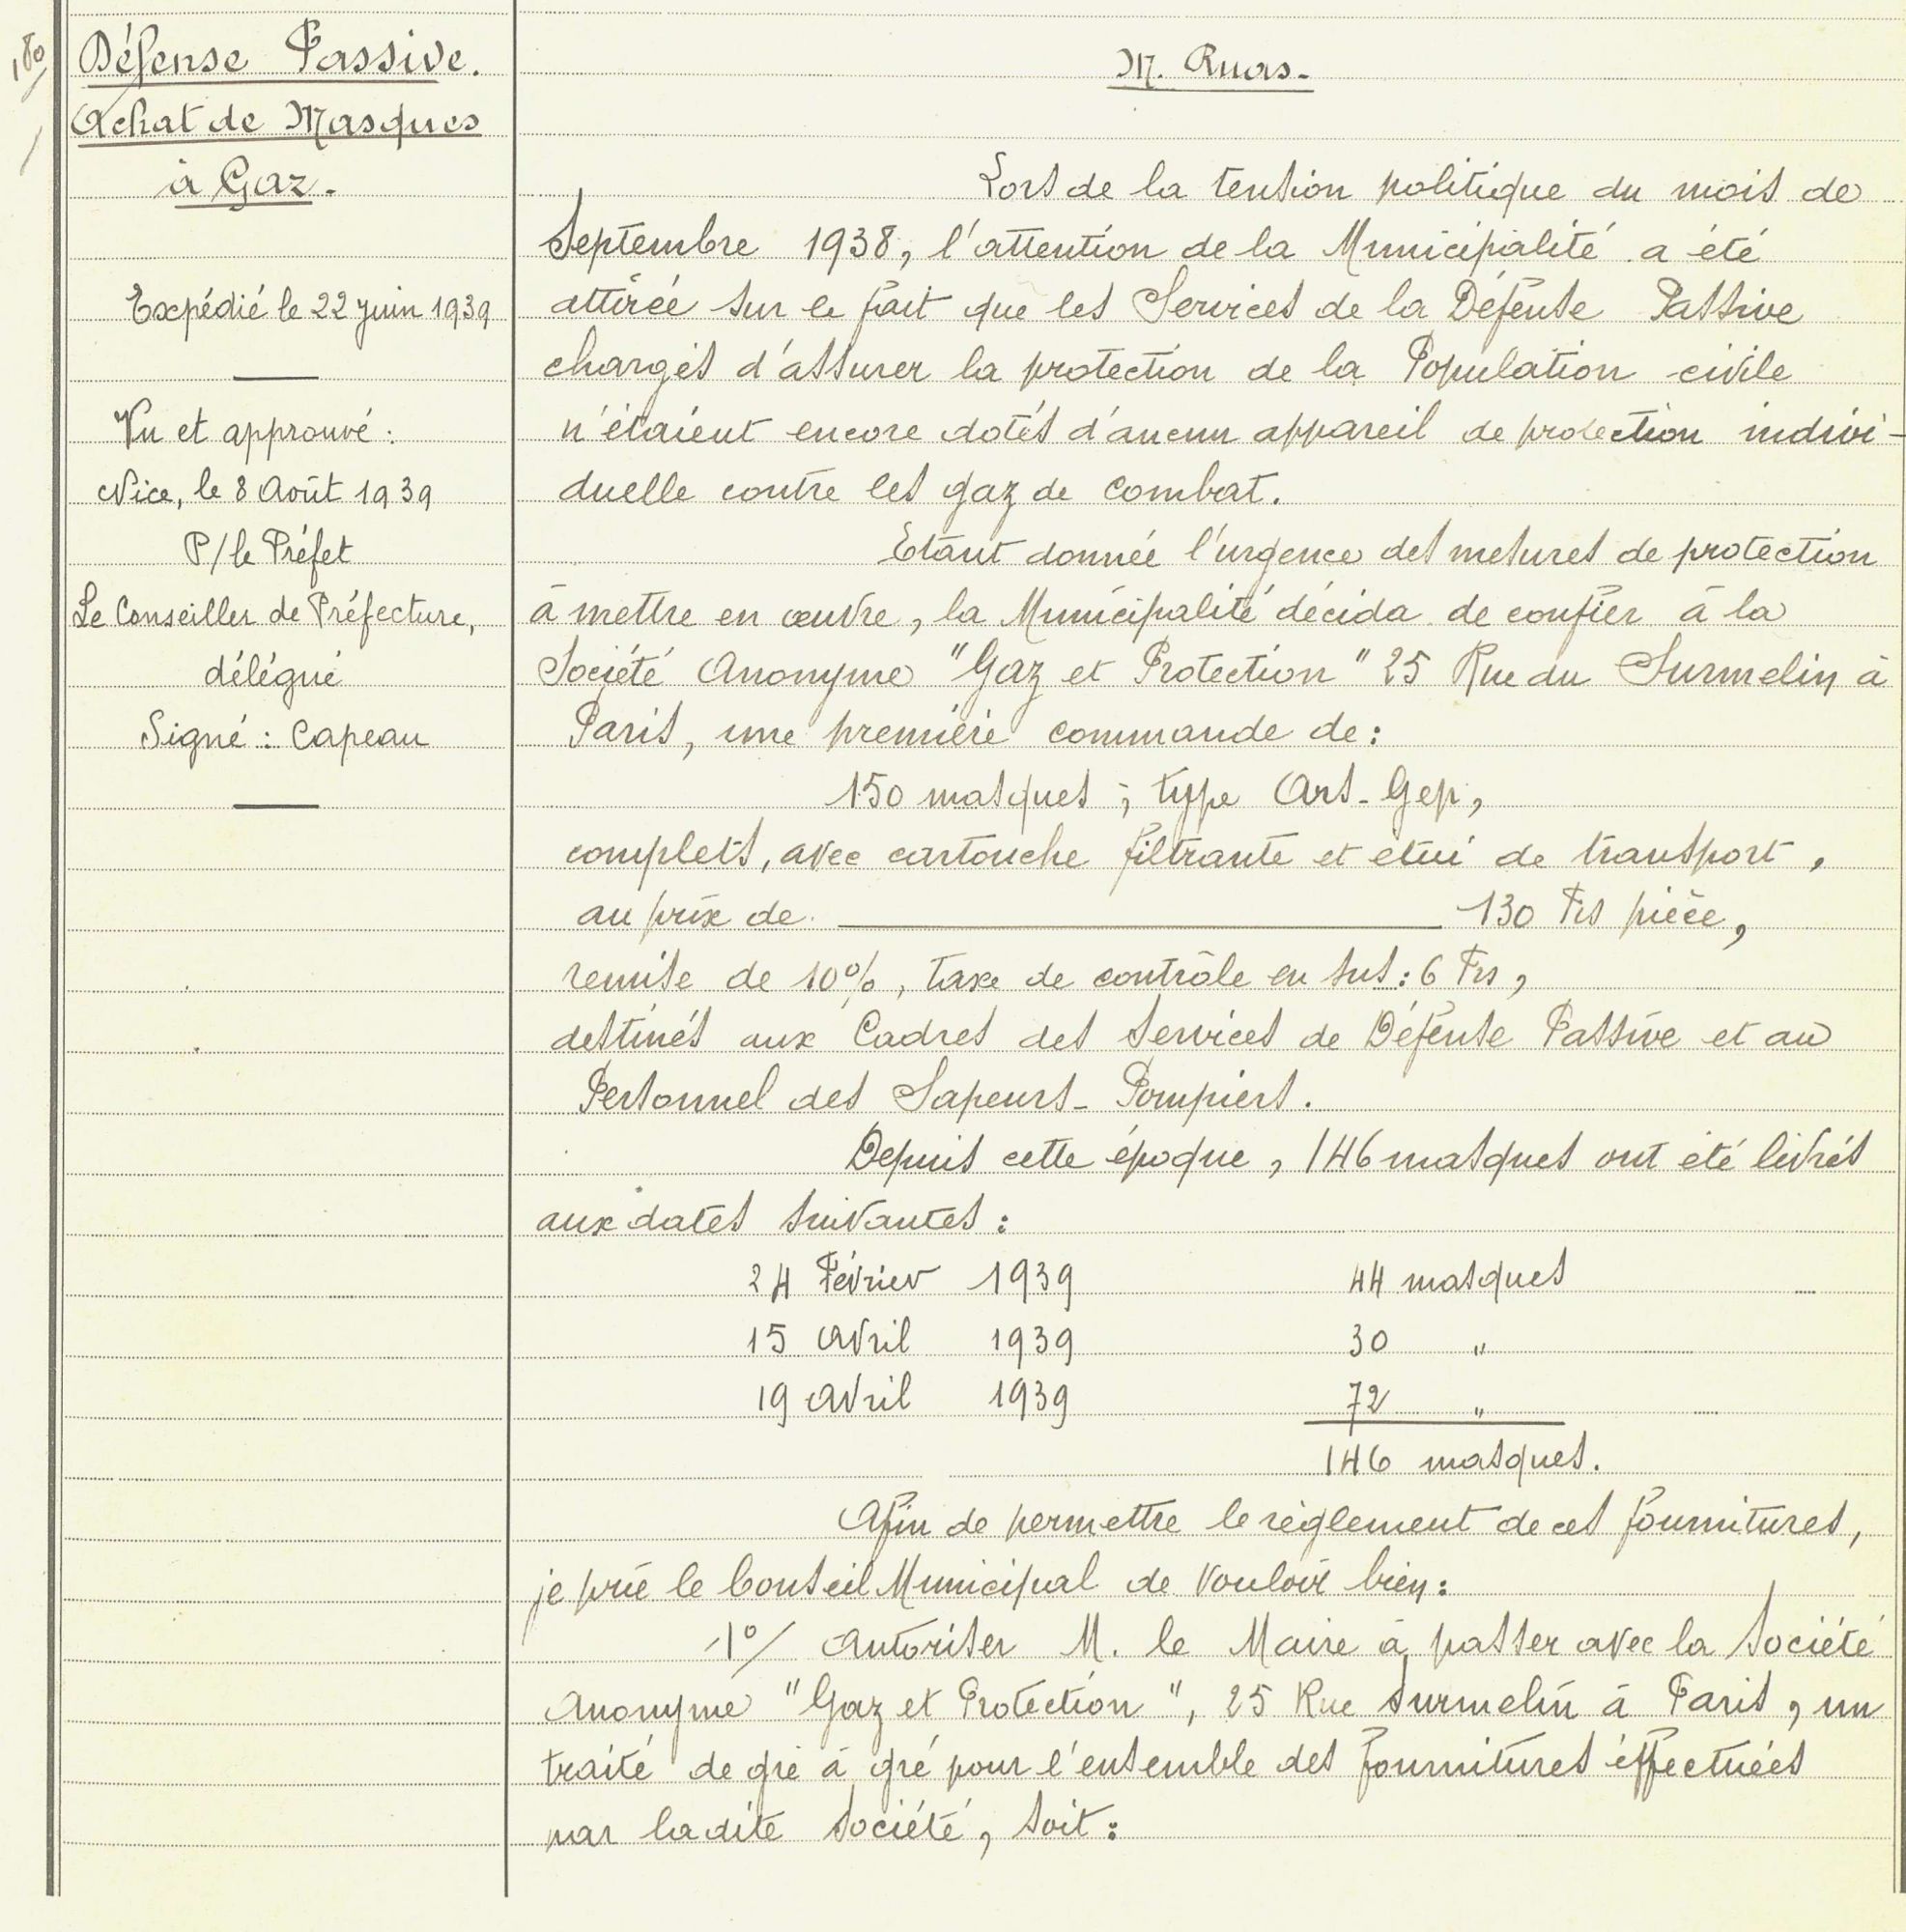 180
Défense Passive.
Achat de Masques
à Gaz.
Expédié le 22 juin 1939
Vu et approuvé :
Nice, le 8 Août 1939
P/le Préfet
Le Conseiller de Préfecture,
délégué
Signé : Capeau
M. Ruas.
Lors de la tension politique du mois de
Septembre 1938, l'attention de la Municipalité a été
attirée sur le fait que les Services de la Défense Passive
chargés d'assurer la protection de la Population civile
n'étaient encore dotés d'aucun appareil de protection indivi-
duelle contre les gaz de combat.
Etant donnée l'urgence des mesures de protection
à mettre en œuvre, la Municipalité décida de confier à la
Société Anonyme "Gaz et Protection" 25 Rue du Surmelin à
Paris, une première commande de :
150 masques ; type Ars-Gep,
complets, avec cartouche filtrante et étui de transport,
au prix de 130 Frs pièce,
remise de 10%, taxe de contrôle en sus : 6 Frs,
destinés aux Cadres des Services de Défense Passive et au
Personnel des Sapeurs-Pompiers.
Depuis cette époque, 146 masques ont été livrés
aux dates suivantes :
24 Février 1939 44 masques
15 Avril 1939 30 "
19 Avril 1939 72 "
146 masques.
Afin de permettre le règlement de ces fournitures,
je prie le Conseil Municipal de vouloir bien :
1°/ Autoriser M. le Maire à passer avec la Société
Anonyme "Gaz et Protection", 25 Rue Surmelin à Paris, un
traité de gré à gré pour l'ensemble des fournitures éffectuées
par ladite Société, soit :